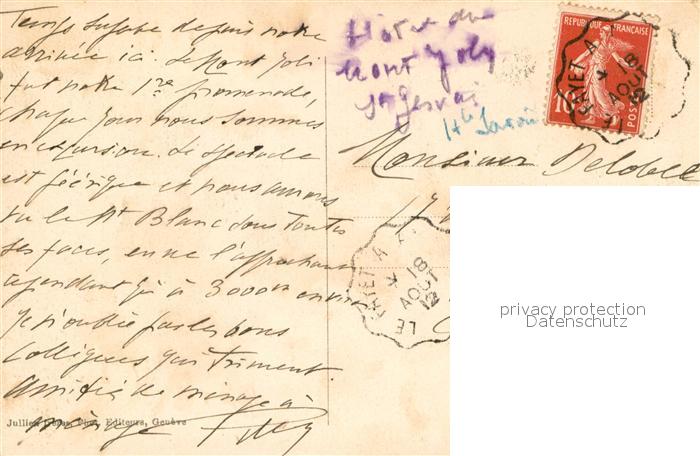 Temps superbe depuis notre
arrivée ici. Le Mont Joli
fut notre 1re promenade,
chaque jour nous sommes
en excursion. Le spectacle
est féérique et nous aurons
vu le Mt Blanc sous toutes
ses faces, en ne l'approchant
cependant qu'à 3000m environ
Je n'oublie pas les bons
collègues qui triment.
Amitiés de ménage à
ménage
Jullien Frères, Phot. Editeurs, Genève
Hôtel du
Mont Joly
St Gervais
Hte Savoie
REPUBLIQUE FRANÇAISE
10
POSTES
LE FAYET A
18
AOUT
12
Monsieur Delobell
17
LE FAYET A
18
AOUT
12
privacy protection
Datenschutz